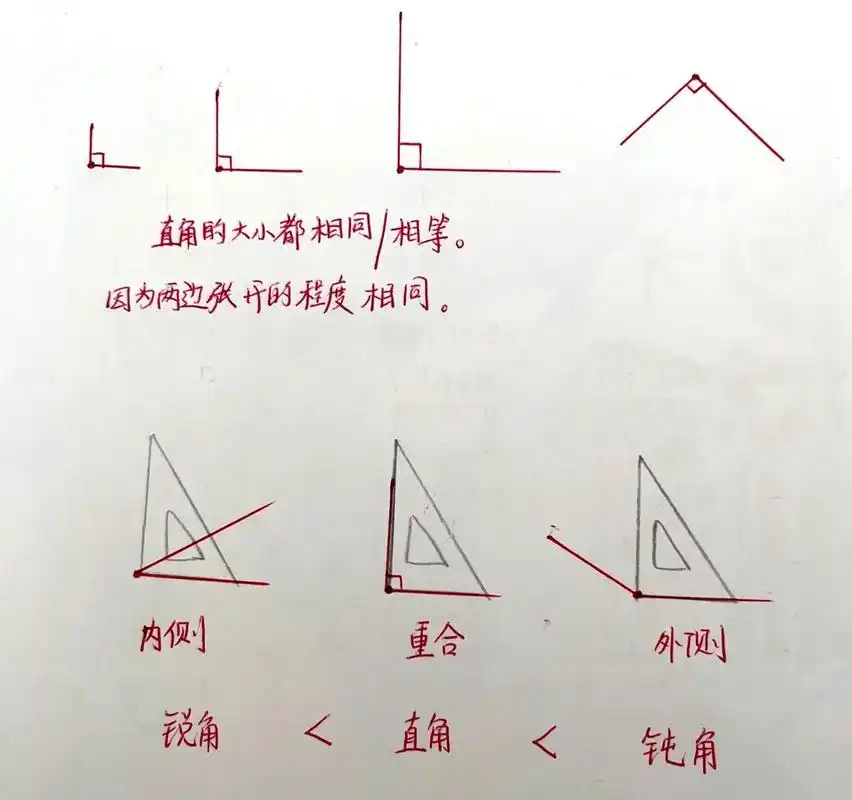 直角的大小都相同/相等。
因为两边张开的程度相同。
内侧 重合 外侧
锐角 < 直角 < 钝角